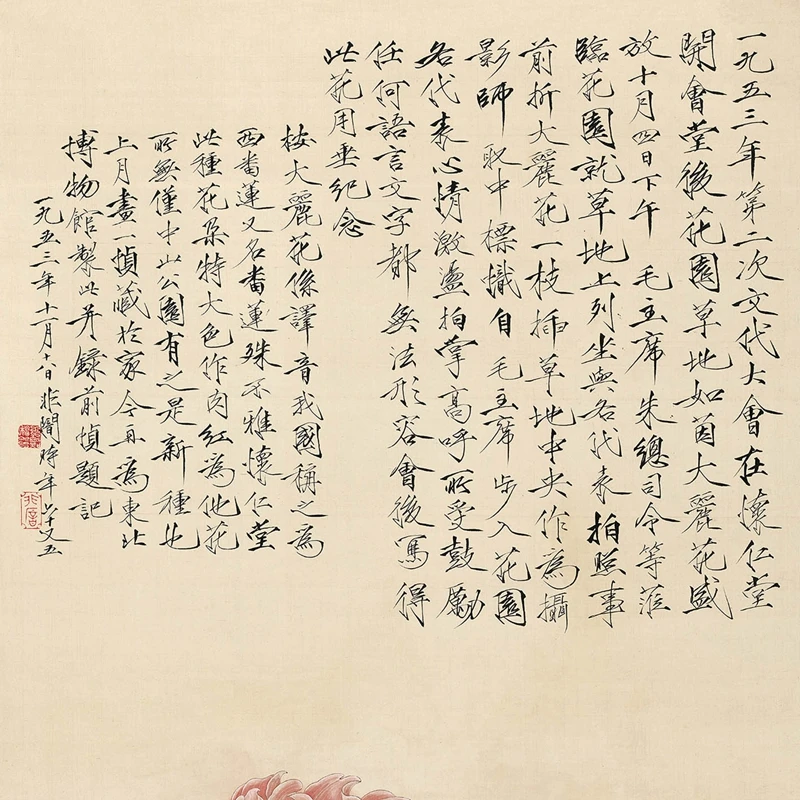 一九五三年第二次文代大會在懷仁堂
開會堂後花園草地如茵大麗花盛
放十月四日下午 毛主席朱總司令等蒞
臨花園就草地上列坐與各代表拍照事
前折大麗花一枝插草地中央作為攝
影師取中標幟自 毛主席步入花園
各代表心情激盪拍掌高呼所受鼓勵
任何語言文字都無法形容會後寫得
此花用垂紀念
按大麗花係譯音我國稱之為
西番蓮又名番蓮殊不雅懷仁堂
此種花朵特大色作肉紅為他花
所無僅中山公園有之是新種也
上月畫一幀藏於家今再為東北
博物館製此并錄前幀題記
一九五三年十一月十八日非闇時年六十又五